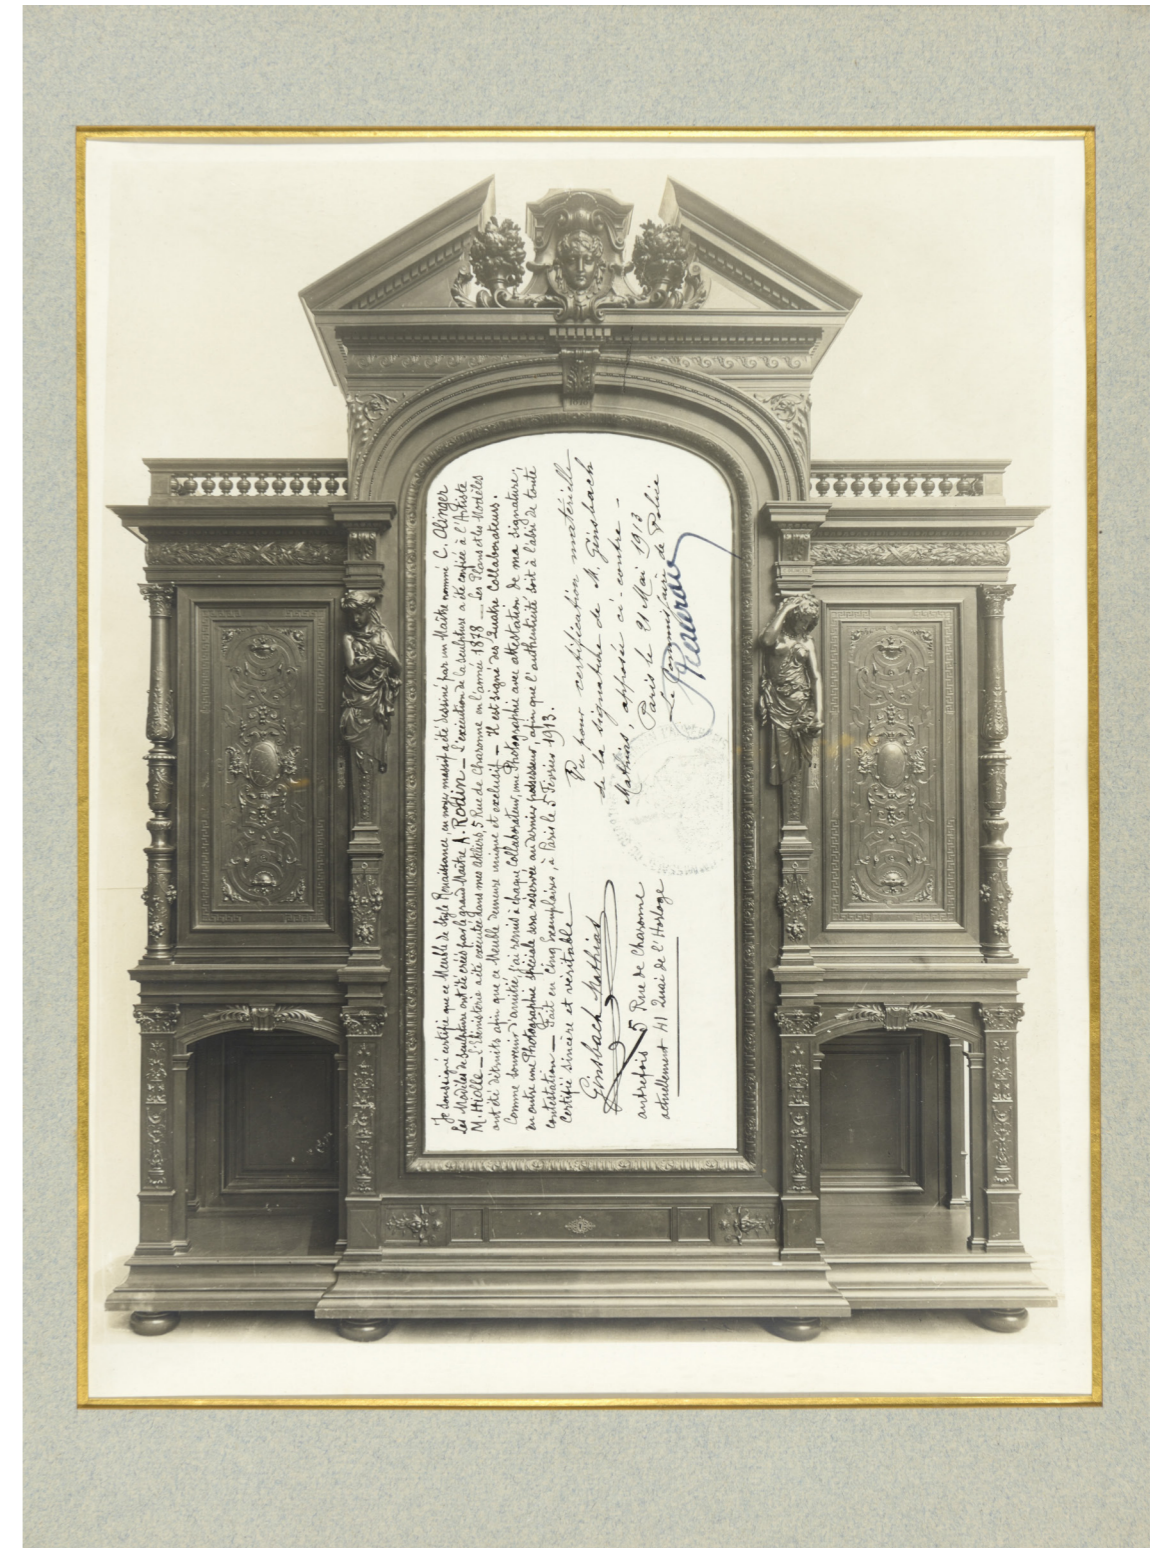 Je soussigné certifie que ce Meuble de Style Renaissance en noyer massif a été dessiné par un Maître nommé C. Alinger
Les Modèles de sculpture ont été créés par le grand Maître A. Rodin — L'exécution de la sculpture a été confiée à l'Artiste
M. Hiolle — L'ébénisterie a été executée dans mes ateliers, 5 Rue de Charonne en l'année 1878 — Les Plans et les Modèles
ont été détruits afin que ce Meuble demeure unique et exclusif — Il est signé des Quatre Collaborateurs.
Comme souvenir d'amitié, j'ai remis à chaque Collaborateur, une Photographie avec attestation de ma signature;
en outre une Photographie spéciale sera réservée au dernier possesseur, afin que l'authenticité soit à l'abri de toute
contestation — Fait en cinq exemplaires, à Paris le 5 Fevrier 1913.
Certifié sincère et véritable
Gensbach Mathias
autrefois 5 Rue de Charonne
actuellement 41 Quai de l'Horloge
Vu pour certification matérielle
de la signature de M. Gensbach
Mathias, apposée ci-contre —
Paris le 21 Mai 1913
Le Commissaire de Police